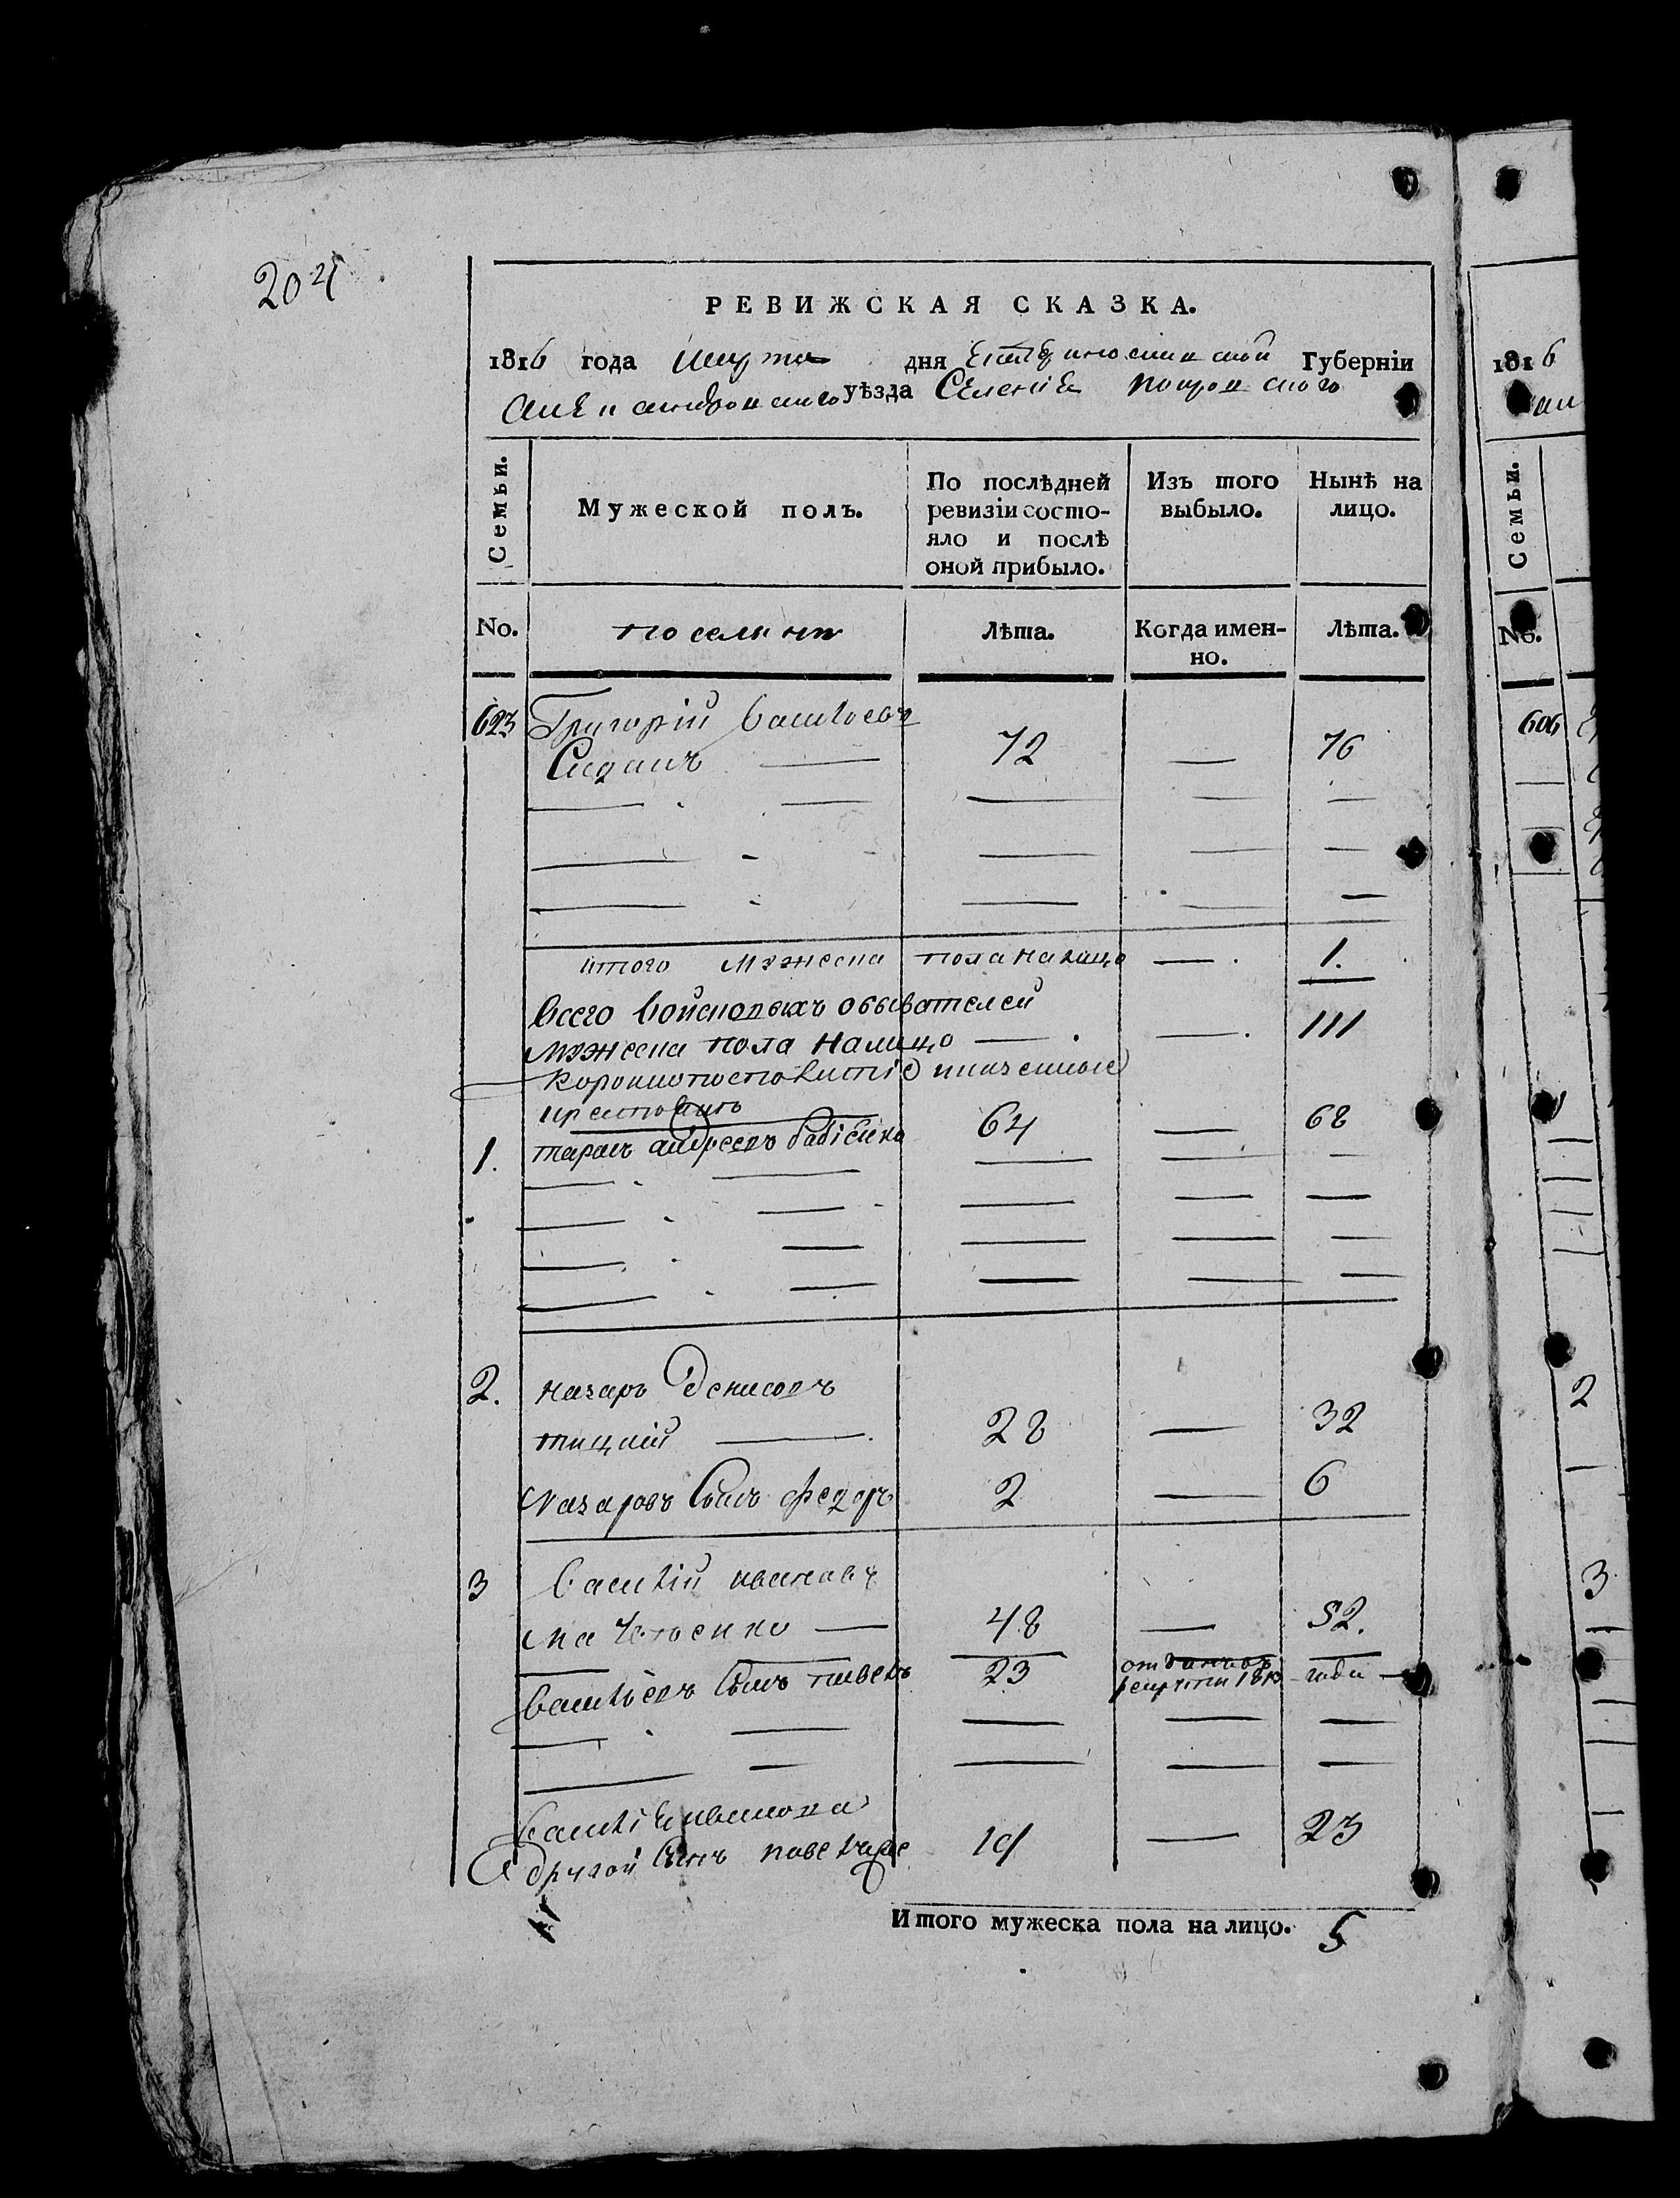 204
РЕВИЖСКАЯ СКАЗКА.
1816 года Марта дня Екатеринославской Губерніи
Александровского уѣзда Селенія Покровского
Семьи.
Мужеской полъ.
По послѣдней ревизіи состояло и послѣ оной прибыло.
Изъ того выбыло.
Нынѣ на лицо.
No.
Лѣта.
Когда именно.
Лѣта.
623 Григорій Васильевъ
72 — 76
итого мужеска пола налицо — 1.
Всего войсковыхъ обывателей
мужеска пола налицо — — 111
1. тарасъ андреевъ бабіенко 64 — 68
2. назаръ денисовъ
28 — 32
назаровъ сынъ федоръ 2 — 6
3 василій ивановъ
48 — 52.
васильевъ сынъ павелъ 23 отданъ въ рекруты 1813 года —
василія иванова
другой сынъ павелъ же 19 — 23
Итого мужеска пола на лицо. 5
1816
Семьи.
No.
606
2
3